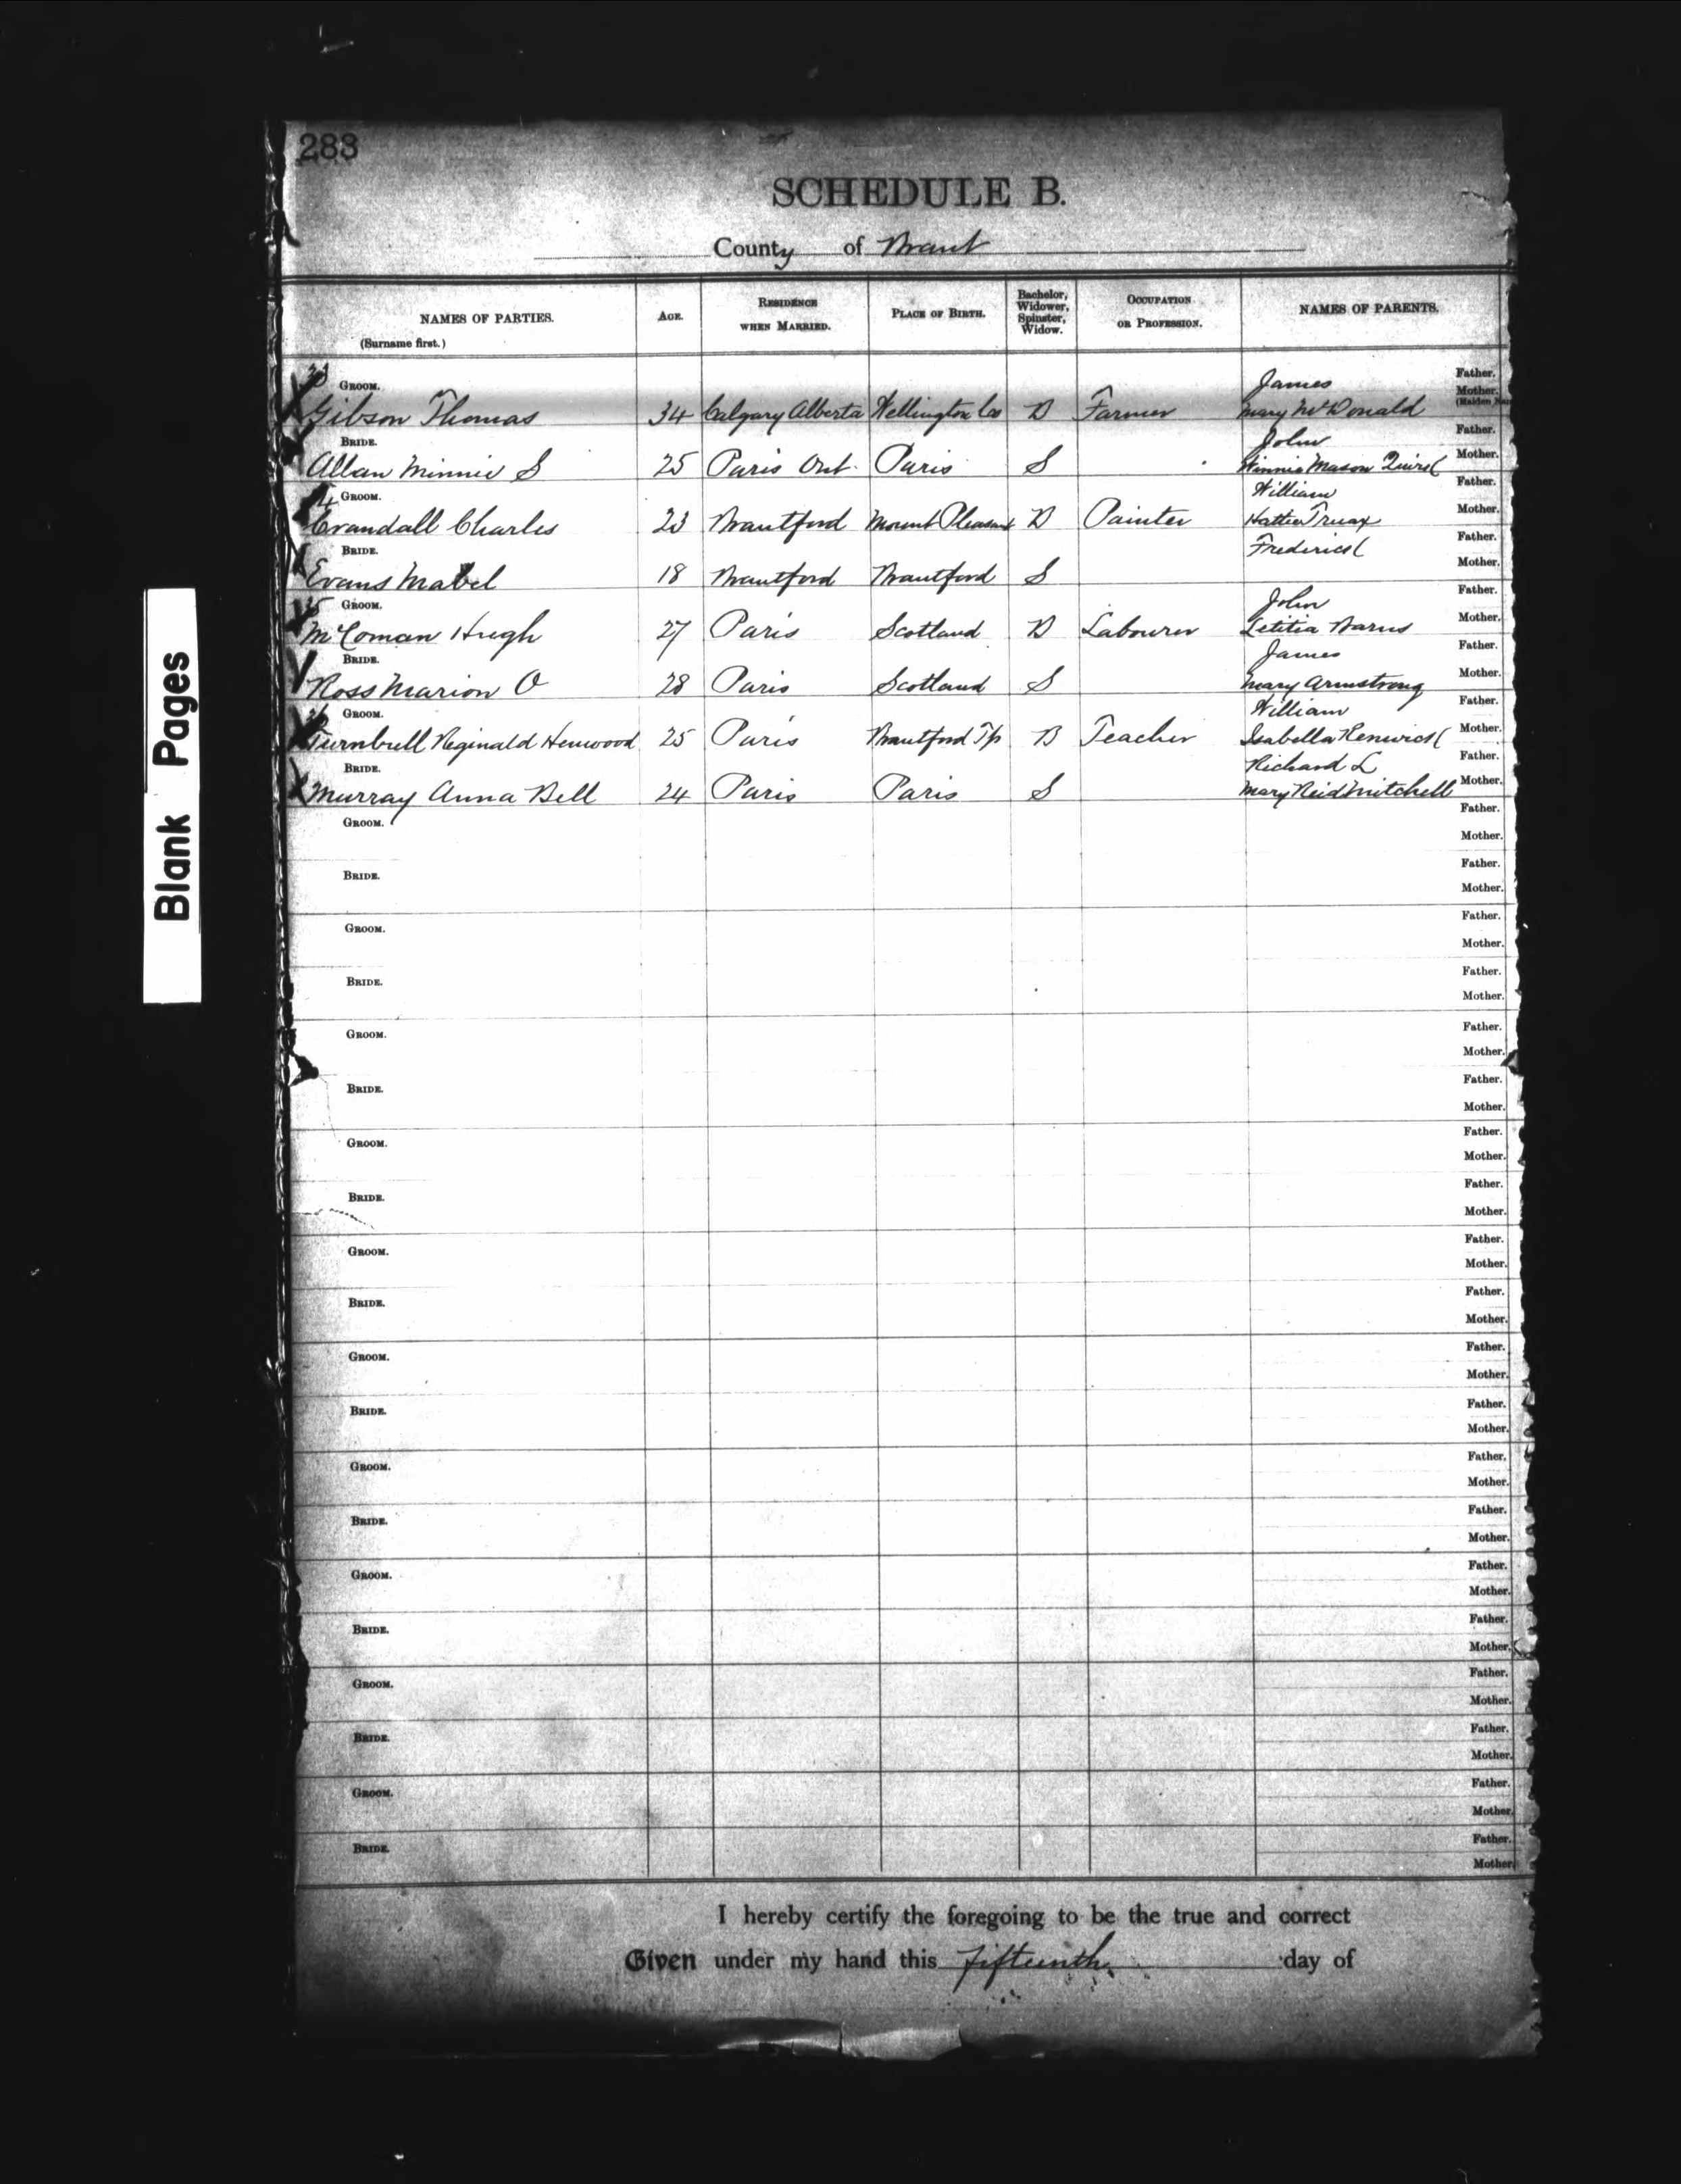 283
SCHEDULE B.
County of Brant
NAMES OF PARTIES.
(Surname first.)
AGE.
RESIDENCE
WHEN MARRIED.
PLACE OF BIRTH.
Bachelor,
Widower,
Spinster,
Widow.
OCCUPATION
OR PROFESSION.
NAMES OF PARENTS.
GROOM. James Father.
Gibson Thomas 34 Calgary Alberta Wellington Co B Farmer Mary McDonald Mother.
BRIDE. John Father.
Allan Minnie S 25 Paris Ont. Paris S Mason Mother.
GROOM. William Father.
Crandall Charles 23 Brantford Mount Pleasant B Painter Hattie Truax Mother.
BRIDE. Frederick Father.
Evans Mabel 18 Brantford Brantford S Mother.
GROOM. John Father.
Hugh 27 Paris Scotland B Labourer Letitia Mother.
BRIDE. James Father.
Ross Marion O 28 Paris Scotland S Mary Armstrong Mother.
GROOM. William Father.
Turnbull Reginald Henwood 25 Paris Brantford Tp B Teacher Isabella Renwick Mother.
BRIDE. Richard L Father.
Murray Anna Bell 24 Paris Paris S Mary Reid Mitchell Mother.
GROOM. Father.
Mother.
BRIDE. Father.
Mother.
GROOM. Father.
Mother.
BRIDE. Father.
Mother.
GROOM. Father.
Mother.
BRIDE. Father.
Mother.
GROOM. Father.
Mother.
BRIDE. Father.
Mother.
GROOM. Father.
Mother.
BRIDE. Father.
Mother.
GROOM. Father.
Mother.
BRIDE. Father.
Mother.
GROOM. Father.
Mother.
BRIDE. Father.
Mother.
GROOM. Father.
Mother.
BRIDE. Father.
Mother.
GROOM. Father.
Mother.
BRIDE. Father.
Mother.
GROOM. Father.
Mother.
BRIDE. Father.
Mother.
I hereby certify the foregoing to be the true and correct
Given under my hand this fifteenth day of
Blank Pages